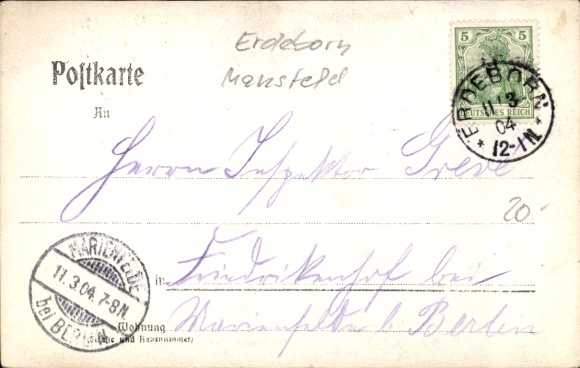 Erdeborn
Mansfeld
5
DEUTSCHES REICH
ERDEBORN
11 3
04
* 12-1N. *
Postkarte
An
Herrn Inspektor Greve
20.-
MARIENFELDE
11.3.04. 7-8N
bei BERLIN
in Friedrikenhof bei
Marienfelde b. Berlin
Wohnung
(Straße und Hausnummer)